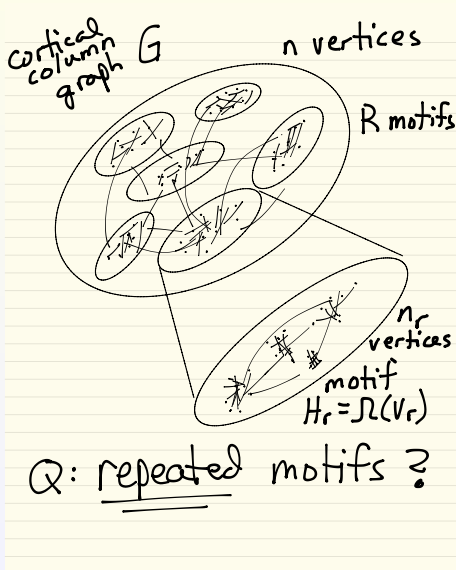 cortical
column
graph
G
n vertices
R motifs
n_r
vertices
motif
H_r = Ω(V_r)
Q: repeated motifs ?